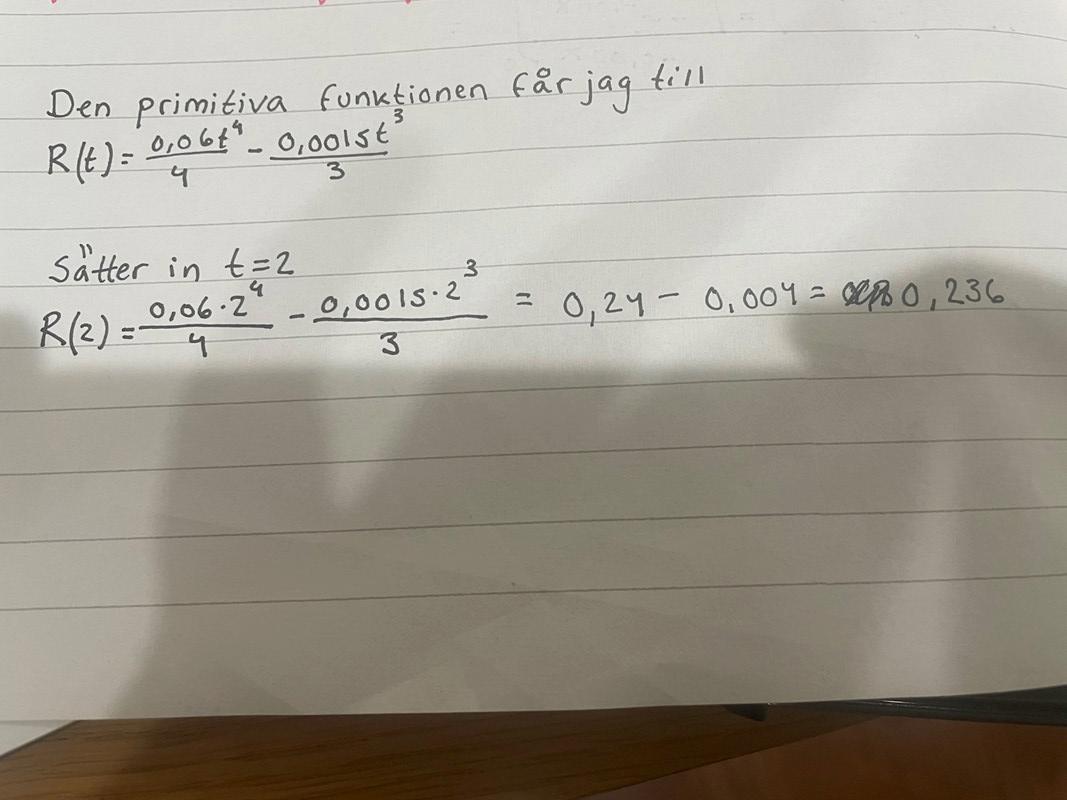 Den primitiva funktionen får jag till
R(t) = 0,06t⁴/4 - 0,0015t³/3
Sätter in t=2
R(2) = 0,06·2⁴/4 - 0,0015·2³/3 = 0,24 - 0,004 = 0,236